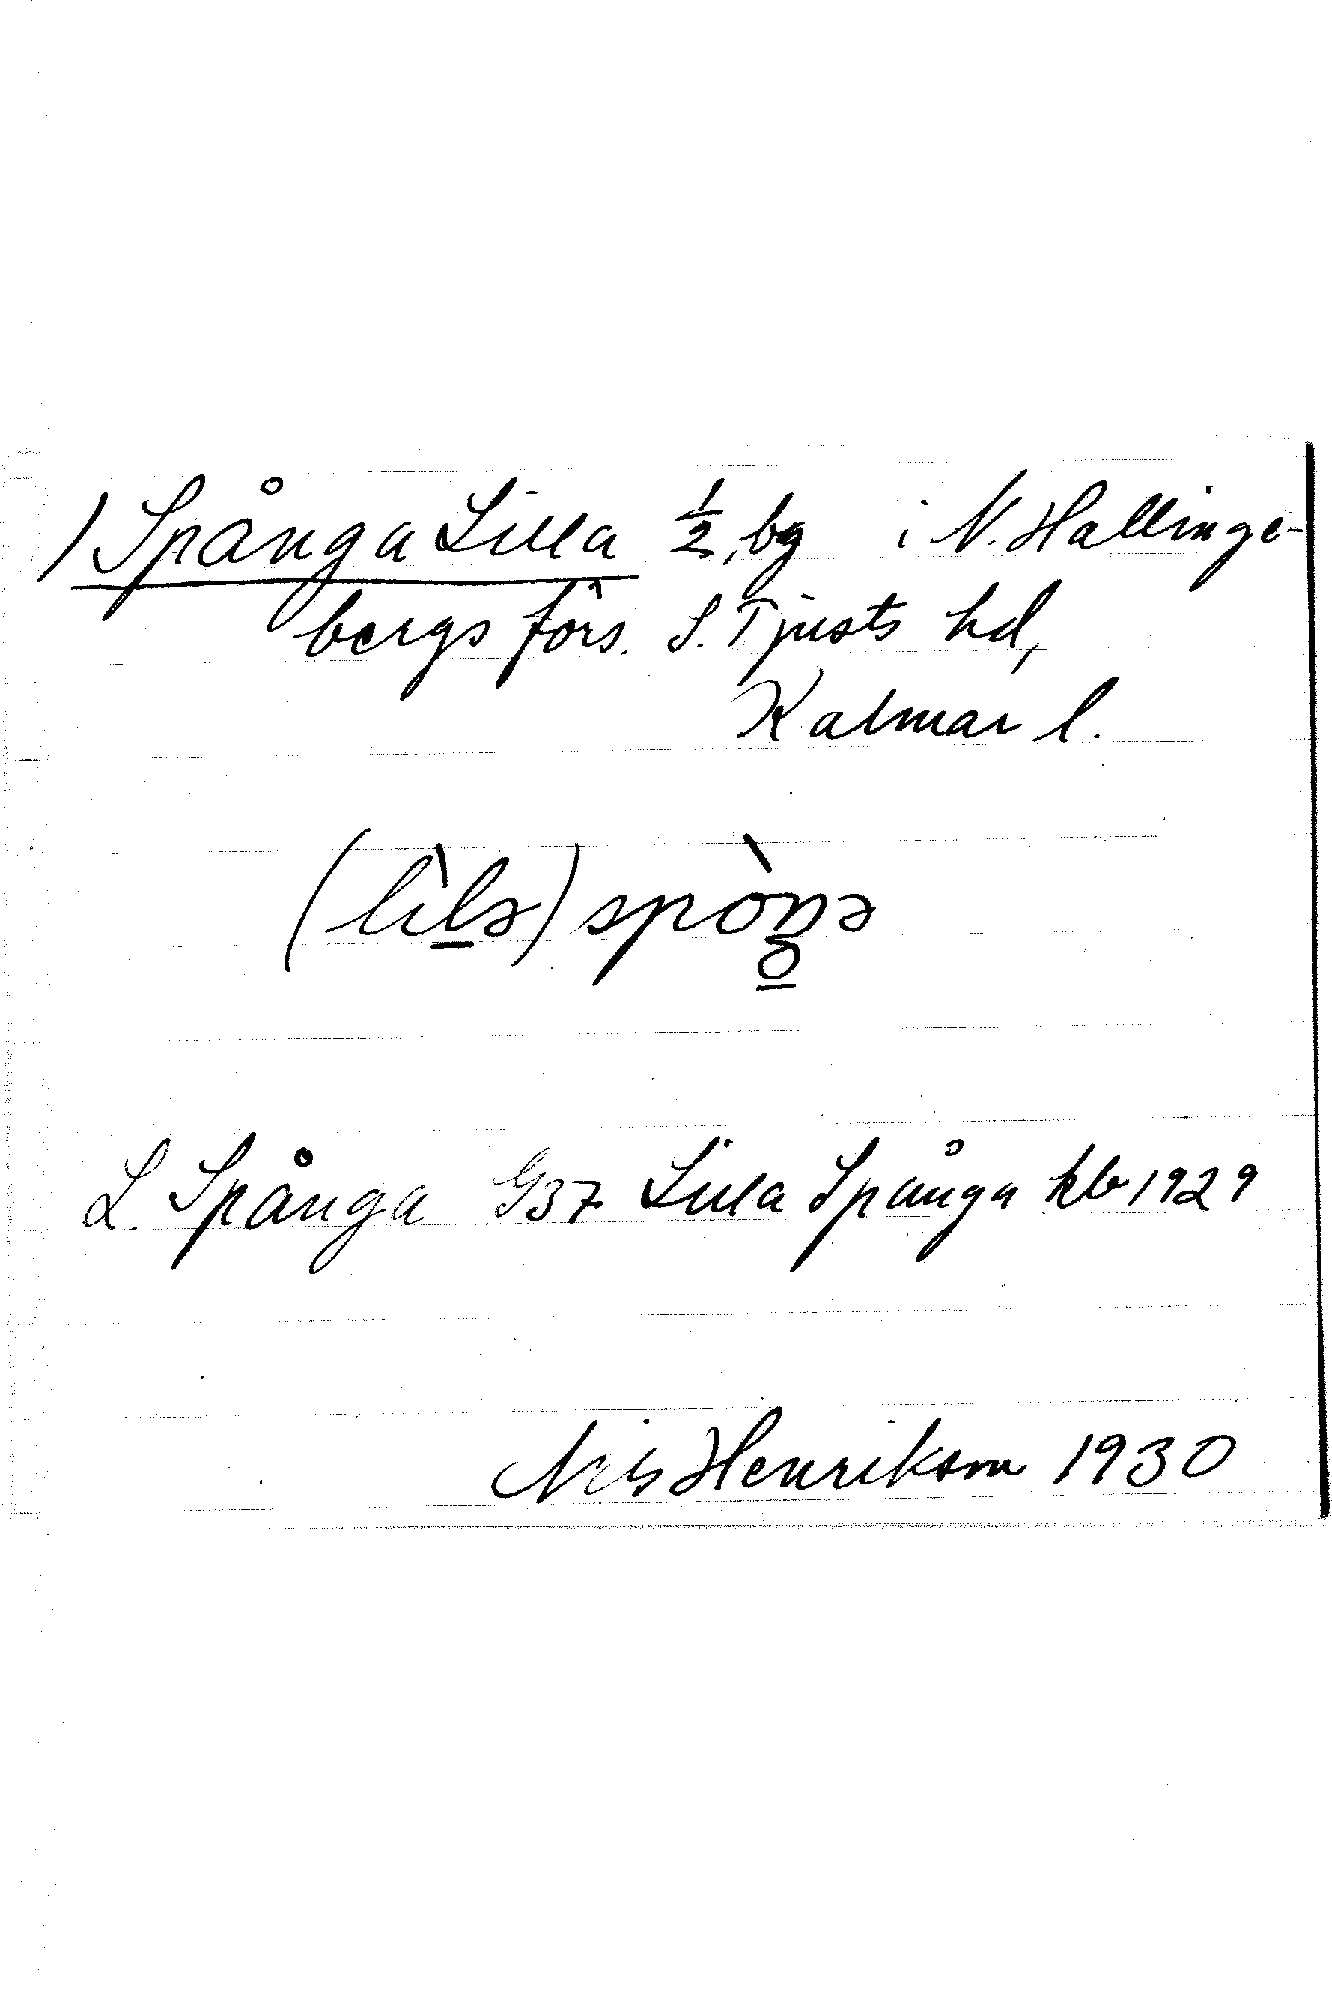 ) Spånga Lilla ½, bg i N. Hallinge-
bergs förs. S. Tjusts hd,
Kalmar l.
(lìlə) spòŋə
L. Spånga G37 Lilla Spånga kb 1929
Nils Henrikson 1930